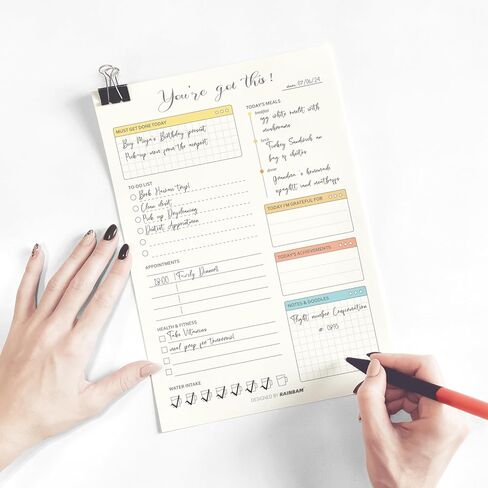 You've got this!
DATE: 07/06/24
MUST GET DONE TODAY
Buy Maya's Birthday present
Pick-up mom from the airport
TO DO LIST
Book Hawaii trip!
Clean desk
Pick up Drycleaning
Dentist Appointment
APPOINTMENTS
18:00 Family Dinner
HEALTH & FITNESS
Take Vitamins
meal prep for tomorrow!
WATER INTAKE
TODAY'S MEALS
breakfast
egg white melt with
mushrooms
lunch
Turkey Sandwich and
bag of chips
dinner
Grandma's homemade
spaghetti and meatballs
TODAY I'M GRATEFUL FOR
TODAY'S ACHIEVEMENTS
NOTES & DOODLES
Flight number Confirmation
DESIGNED BY RAINBAM